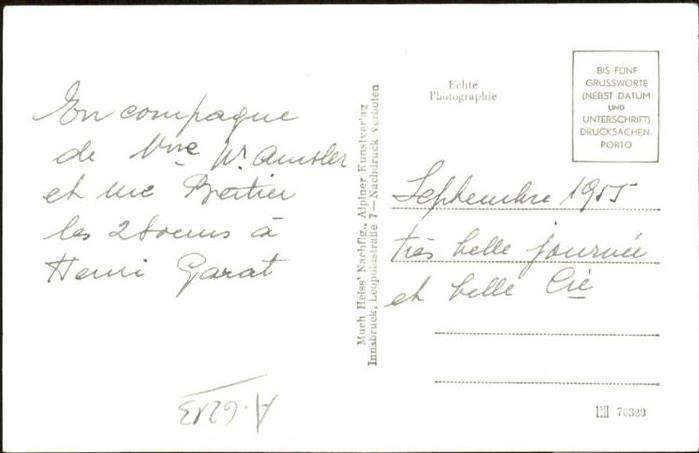 En compagnie
de Mme W. Amsler
et Mme Bertier
les 2 soeurs à
Henri Garat
A-6213
Much Heiss' Nachflg., Alpiner Kunstverlag
Innsbruck, Leopoldstraße 7 — Nachdruck verboten
Echte
Photographie
BIS FÜNF
GRUSSWORTE
(NEBST DATUM
UND
UNTERSCHRIFT)
DRUCKSACHEN-
PORTO
Septembre 1955
très belle journée
et belle Cie
76329